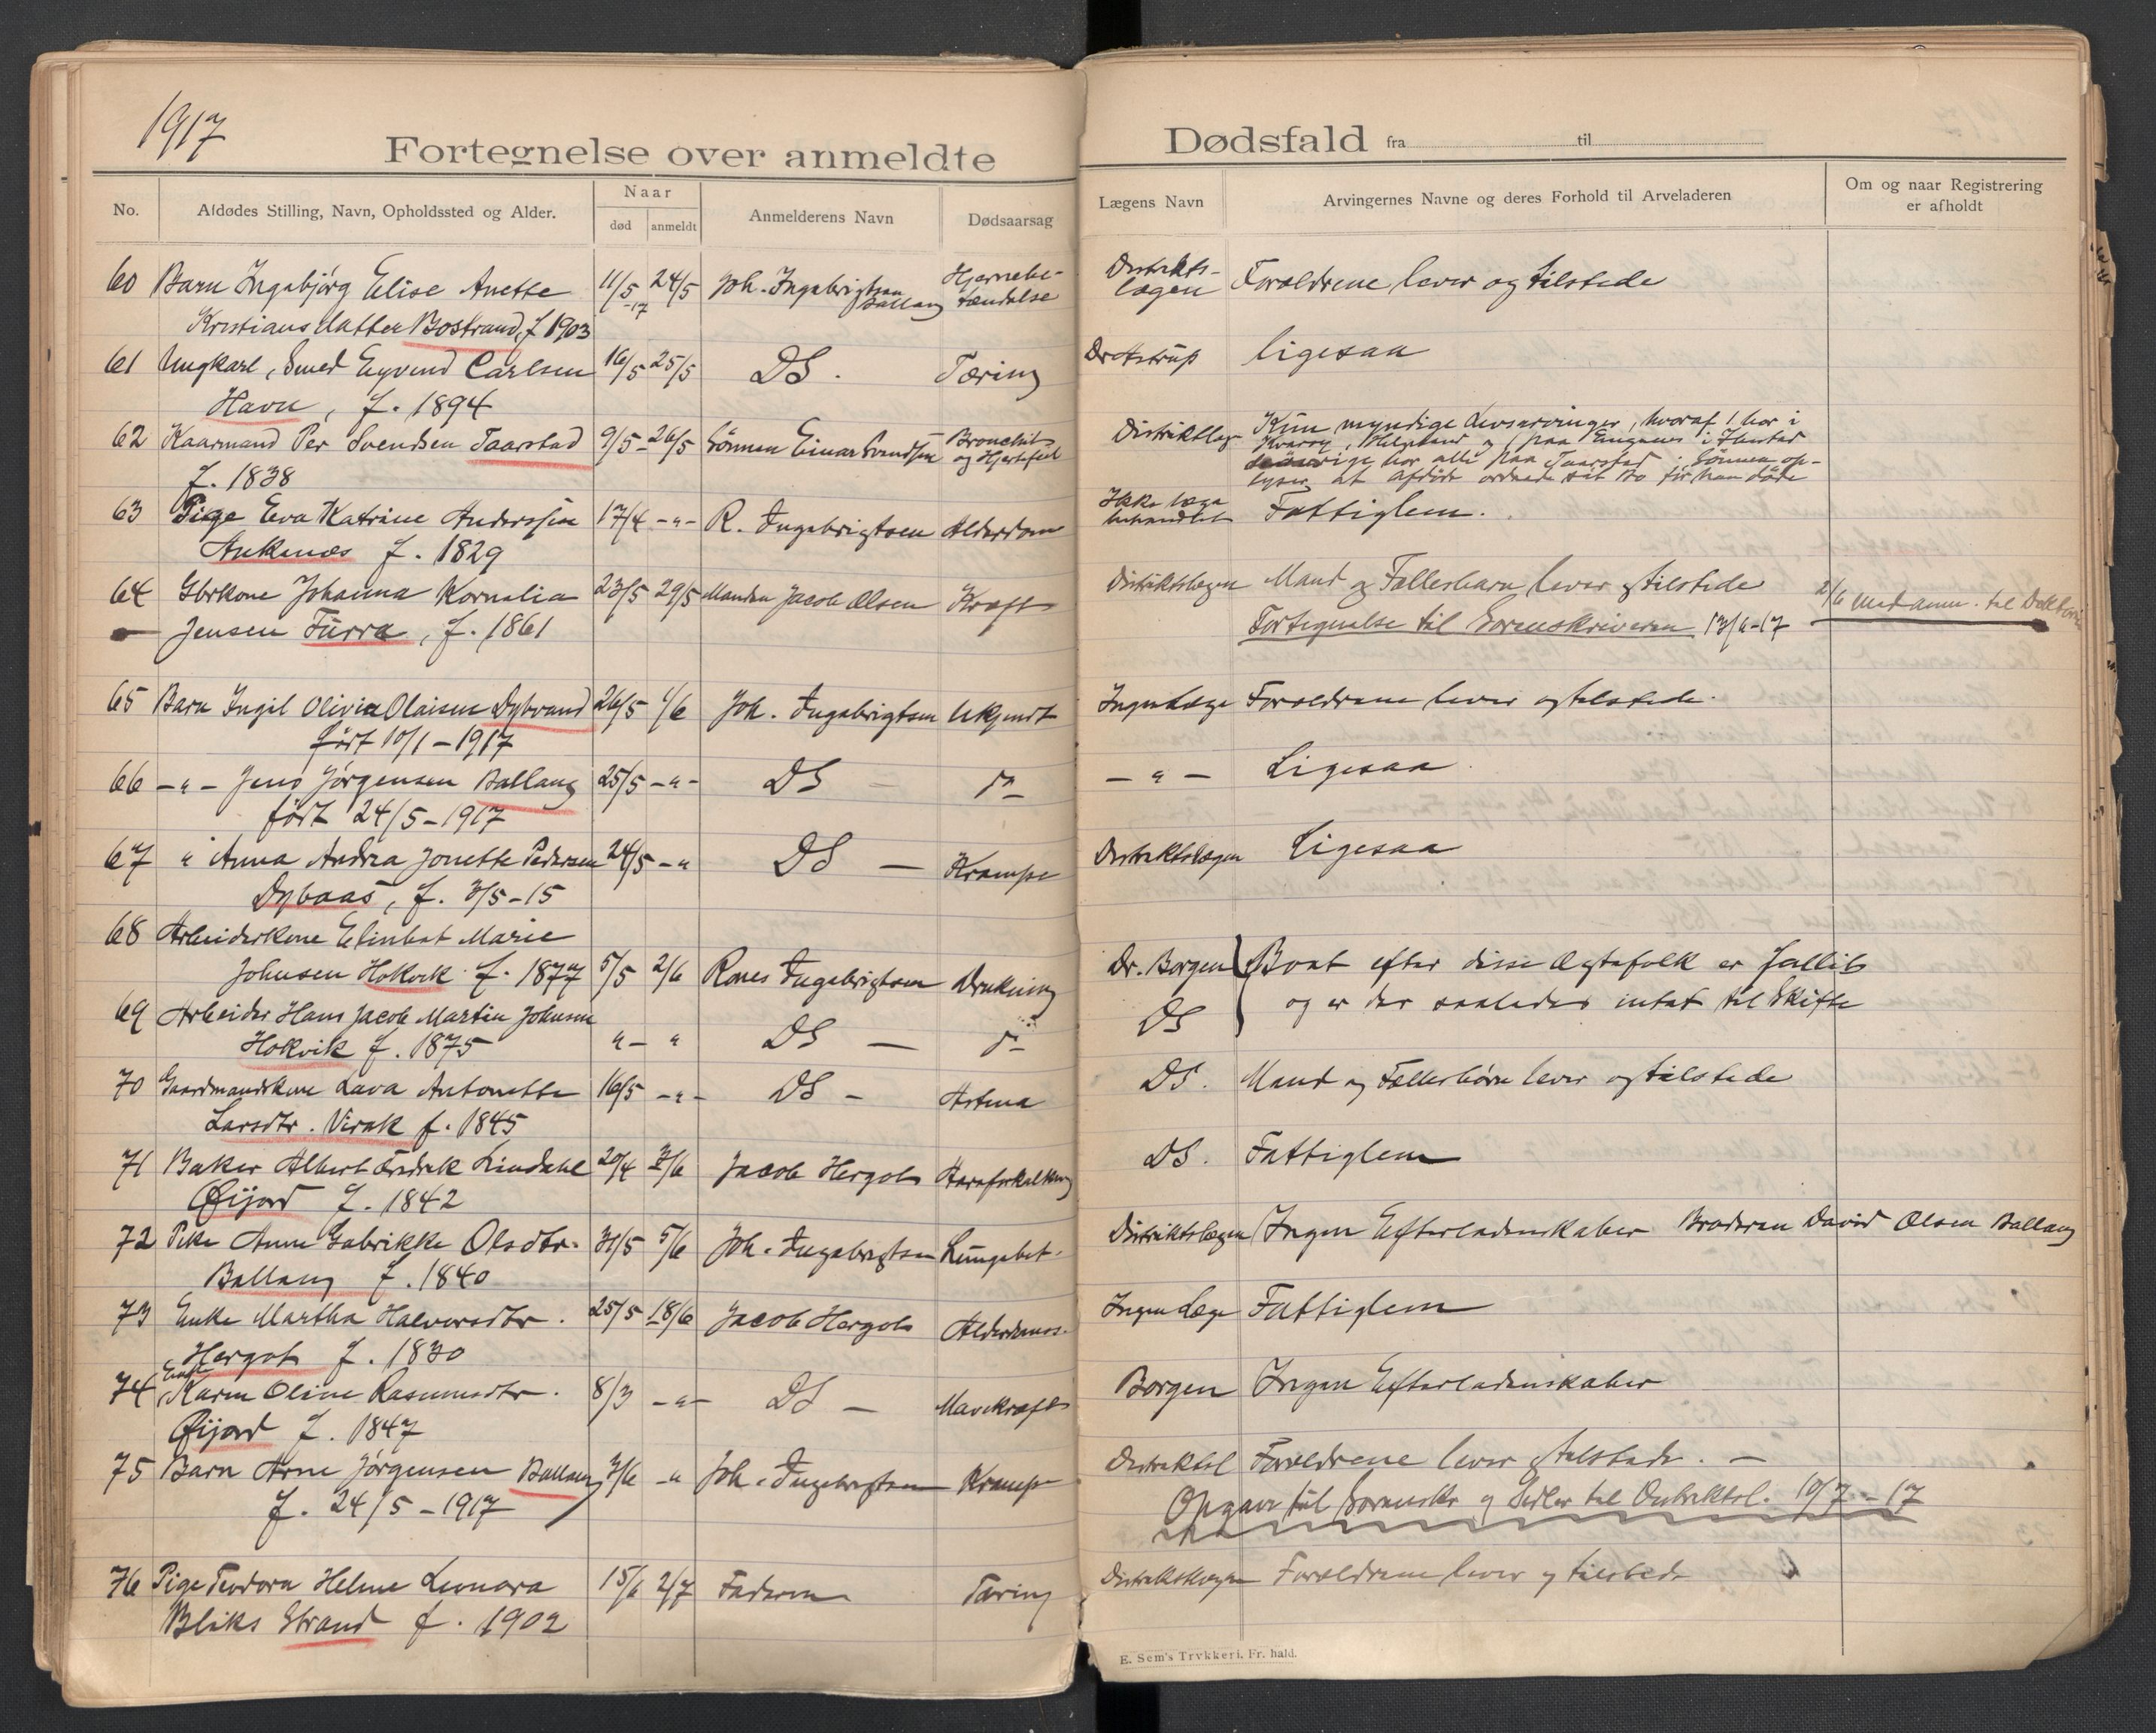 1917
Fortegnelse over anmeldte Dødsfald fra til
No.
Afdødes Stilling, Navn, Opholdssted og Alder.
Naar
død
anmeldt
Anmelderens Navn
Dødsaarsag
Lægens Navn
Arvingernes Navne og deres Forhold til Arveladeren
Om og naar Registrering
er afholdt
60 Barn Ingebjørg Elise Anette 11/5 -17 24/5 Joh. Ingebrigtsen Ballang Hjernebe-
tændelse Distrikts-
lægen Forældrene lever og tilstede
Kristiansdatter Bostrand, f 1903
61 Ungkarl, Smed Eyvind Carlsen 16/5 25/5 DS. Tæring Dr Astrup ligesaa
Havn, f. 1894
62 Kaarmand Per Svendsen Taarstad 9/5 26/5 Sønnen Einar Svendsen Bronchit
og Hjertefeil Distriktslæg Kun myndige Livsarvinger, hvoraf 1 bor i
f. 1838 Kvarøy, Helgeland og 1 paa Engenes i Ibestad
øvrige bor alle paa Taarstad. Sønnen op-
lyser at afdøde ordnede sit Bo før han døde
63 Pige Eva Katrine Anderssen 17/4 -"- R. Ingebrigtsen Alderdom Ikke læge
behandlet Fattiglem.
Ankenes f. 1829
64 Gbrkone Johanna Kornelia 23/5 29/5 Manden Jacob Olsen Kræft Distriktslægen Mand og Fællesbarn lever og tilstede
Jensen Furra, f. 1861 Fortegnelse til Sorenskriveren 13/6-17 2/6 med anm. til
65 Barn Ingil Olivia Olaisen Dybvand 26/5 1/6 Joh. Ingebrigtsen Ukjendt Ingen Læge Forældrene lever og tilstede.
født 10/1-1917
66 -"- Jens Jørgensen Ballang 25/5 -"- DS - -"- Ligesaa.
født 24/5-1917
67 " Anna Andrea Jonette Pedersen 24/5 -" DS - Krampe Distriktslægen Ligesaa
Dybaas, f. 3/5-15
68 Arbeiderkone Elinbet Marie
Johnsen Hokvik f. 1877 5/5 2/6 Rones Ingebrigtsen Drukning Dr. Borgen Boet efter disse Ægtefolk er fallit
69 Arbeider Hans Jacob Martin Johnsen og er der saaledes intet til Skifte
Hokvik f. 1875 "- " DS - DS
70 Gaardmandskone Lava Antonette 16/5 -"- DS - Astma DS. Mand og Fællesbørn lever og tilstede
Larsdtr. Virak f. 1845
71 Baker Albert Fredrik Lindahl 20/4 3/6 Jacob Hergot Aareforkalkning DS. Fattiglem
Øijord f. 1842
72 Pike Anne Gabrikke Olsdtr. 31/5 5/6 Joh. Ingebrigtsen Lungebet. Distriktslægen Ingen Efterladenskaber Broderen David Olsen Ballang
Ballang f. 1840
73 Enke Martha Halvorsdtr. 25/5 18/6 Jacob Hergot Alderdoms. Ingen Læge Fattiglem
Hergot f. 1830
74 Enke Karen Oline Rasmusdtr. 8/3 -"- DS - Mavekræft Borgen Ingen Efterladenskaber
Øijord f. 1847
75 Barn Arne Jørgensen Ballang 3/6 -" Joh. Ingebrigtsen Krampe Distriktsl Forældrene lever og tilstede. -
f. 24/5-1917 Opgave til Sorenskr og Sedler til Distriktsl. 10/7-17
76 Pige Teodora Helene Leonora 15/6 2/7 Faderen Tæring Distriktslægen Forældrene lever og tilstede
Bliks Strand f. 1902
E. Sem's Trykkeri, Fr. hald.